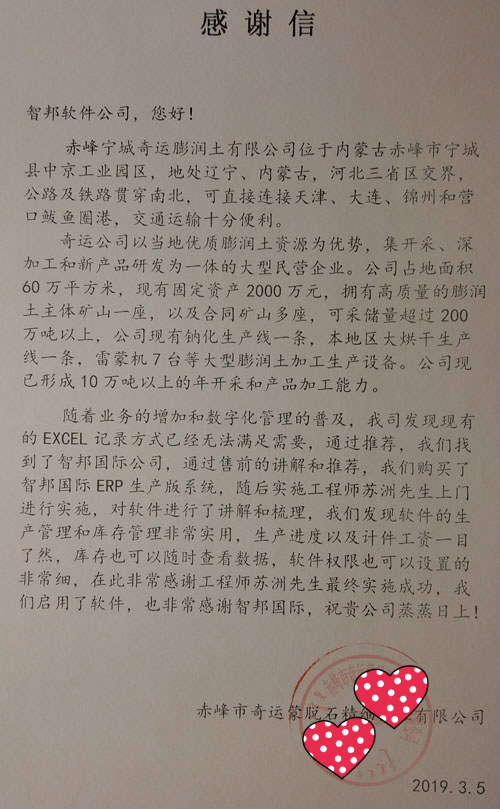 感谢信
智邦软件公司，您好！
赤峰宁城奇运膨润土有限公司位于内蒙古赤峰市宁城
县中京工业园区，地处辽宁、内蒙古，河北三省区交界，
公路及铁路贯穿南北，可直接连接天津、大连、锦州和营
口鲅鱼圈港，交通运输十分便利。
奇运公司以当地优质膨润土资源为优势，集开采、深
加工和新产品研发为一体的大型民营企业。公司占地面积
60万平方米，现有固定资产2000万元，拥有高质量的膨润
土主体矿山一座，以及合同矿山多座，可采储量超过200
万吨以上，公司现有钠化生产线一条，本地区大烘干生产
线一条，雷蒙机7台等大型膨润土加工生产设备。公司现
已形成10万吨以上的年开采和产品加工能力。
随着业务的增加和数字化管理的普及，我司发现现有
的EXCEL记录方式已经无法满足需要，通过推荐，我们找
到了智邦国际公司，通过售前的讲解和推荐，我们购买了
智邦国际ERP生产版系统，随后实施工程师苏洲先生上门
进行实施，对软件进行了讲解和梳理，我们发现软件的生
产管理和库存管理非常实用，生产进度以及计件工资一目
了然，库存也可以随时查看数据，软件权限也可以设置的
非常细，在此非常感谢工程师苏洲先生最终实施成功，我
们启用了软件，也非常感谢智邦国际，祝贵公司蒸蒸日上！
赤峰市奇运蒙脱石精细有限公司
2019.3.5